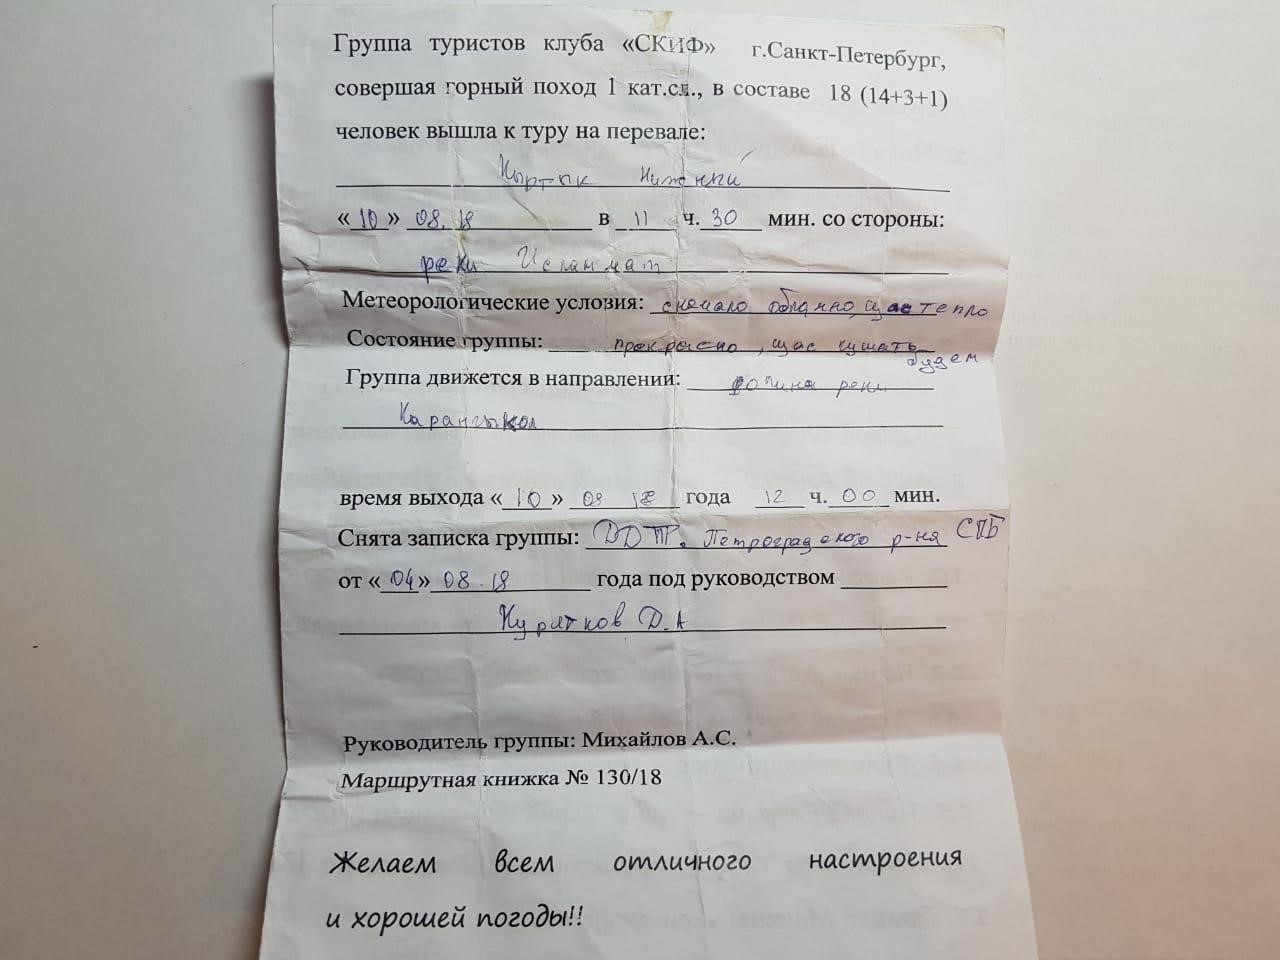 Группа туристов клуба «СКИФ» г.Санкт-Петербург,
совершая горный поход 1 кат.сл., в составе 18 (14+3+1)
человек вышла к туру на перевале:
Кыртык Нижний
«10» 08.18 в 11 ч. 30 мин. со стороны:
реки Исламчат
Метеорологические условия: сначало облачно, щас тепло
Состояние группы: прекрасно, щас кушать будем
Группа движется в направлении: долина реки
Карангыкол
время выхода «10» 08 18 года 12 ч. 00 мин.
Снята записка группы: ДДТ Петроградского р-ня СПБ
от «04» 08.18 года под руководством
Курятков Д.А
Руководитель группы: Михайлов А.С.
Маршрутная книжка № 130/18
Желаем всем отличного настроения
и хорошей погоды!!